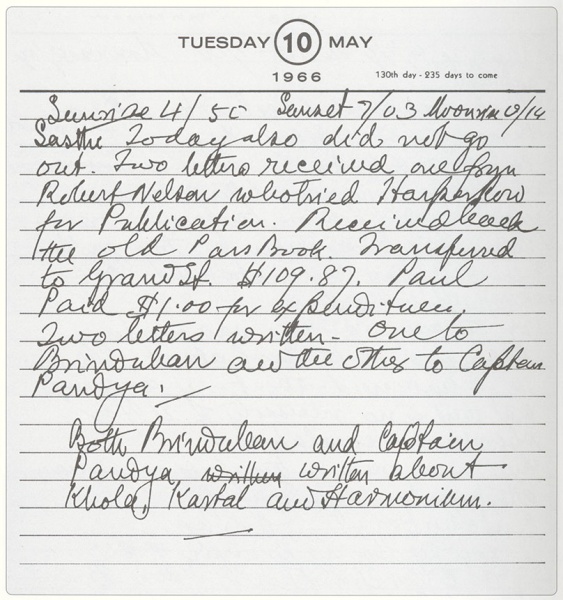 TUESDAY 10 MAY
1966
130th day - 235 days to come
Sunrise 4/50 Sunset 7/03 Moonrise 0/14
Sasthi Today also did not go
out. Two letters received one from
Robert Nelson who tried Harper Row
for Publication. Received back
the old Pass Book. Transferred
to Grand St. $109.87. Paul
Paid $1.00 for expenditure.
Two letters written - one to
Brinduban and the other to Captain
Pandya.
Both Brinduban and Captain
Pandya, written written about
Khola, Kartal and Harmonium.